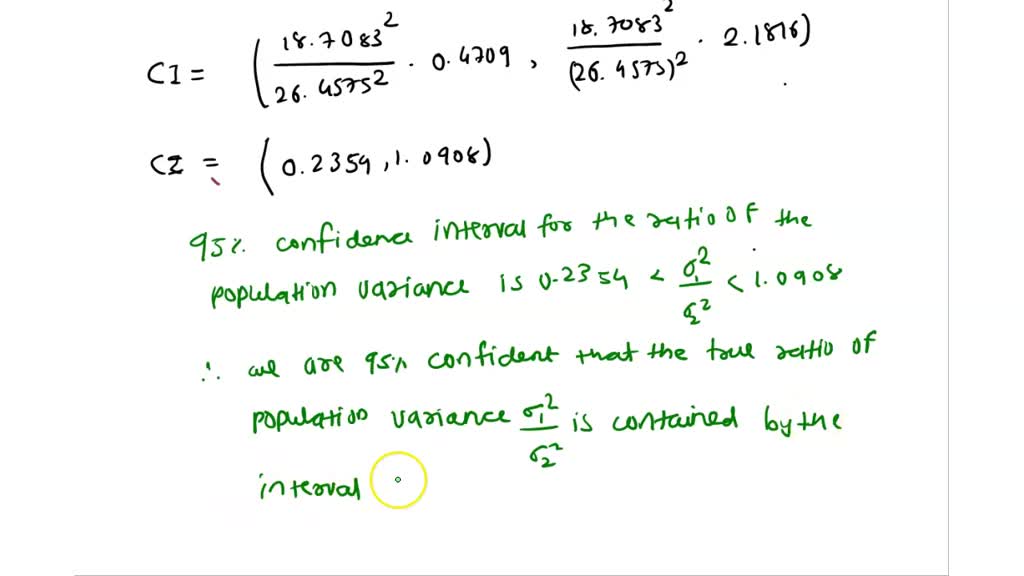 CI = (18.7083² / 26.4575² · 0.4709 , 18.7083² / (26.4575)² · 2.1816)
CI = (0.2354, 1.0908)
95% confidence interval for the ratio of the
population variance is 0.2354 < σ₁²/σ₂² < 1.0908
∴ we are 95% confident that the true ratio of
population variance σ₁²/σ₂² is contained by the
interval